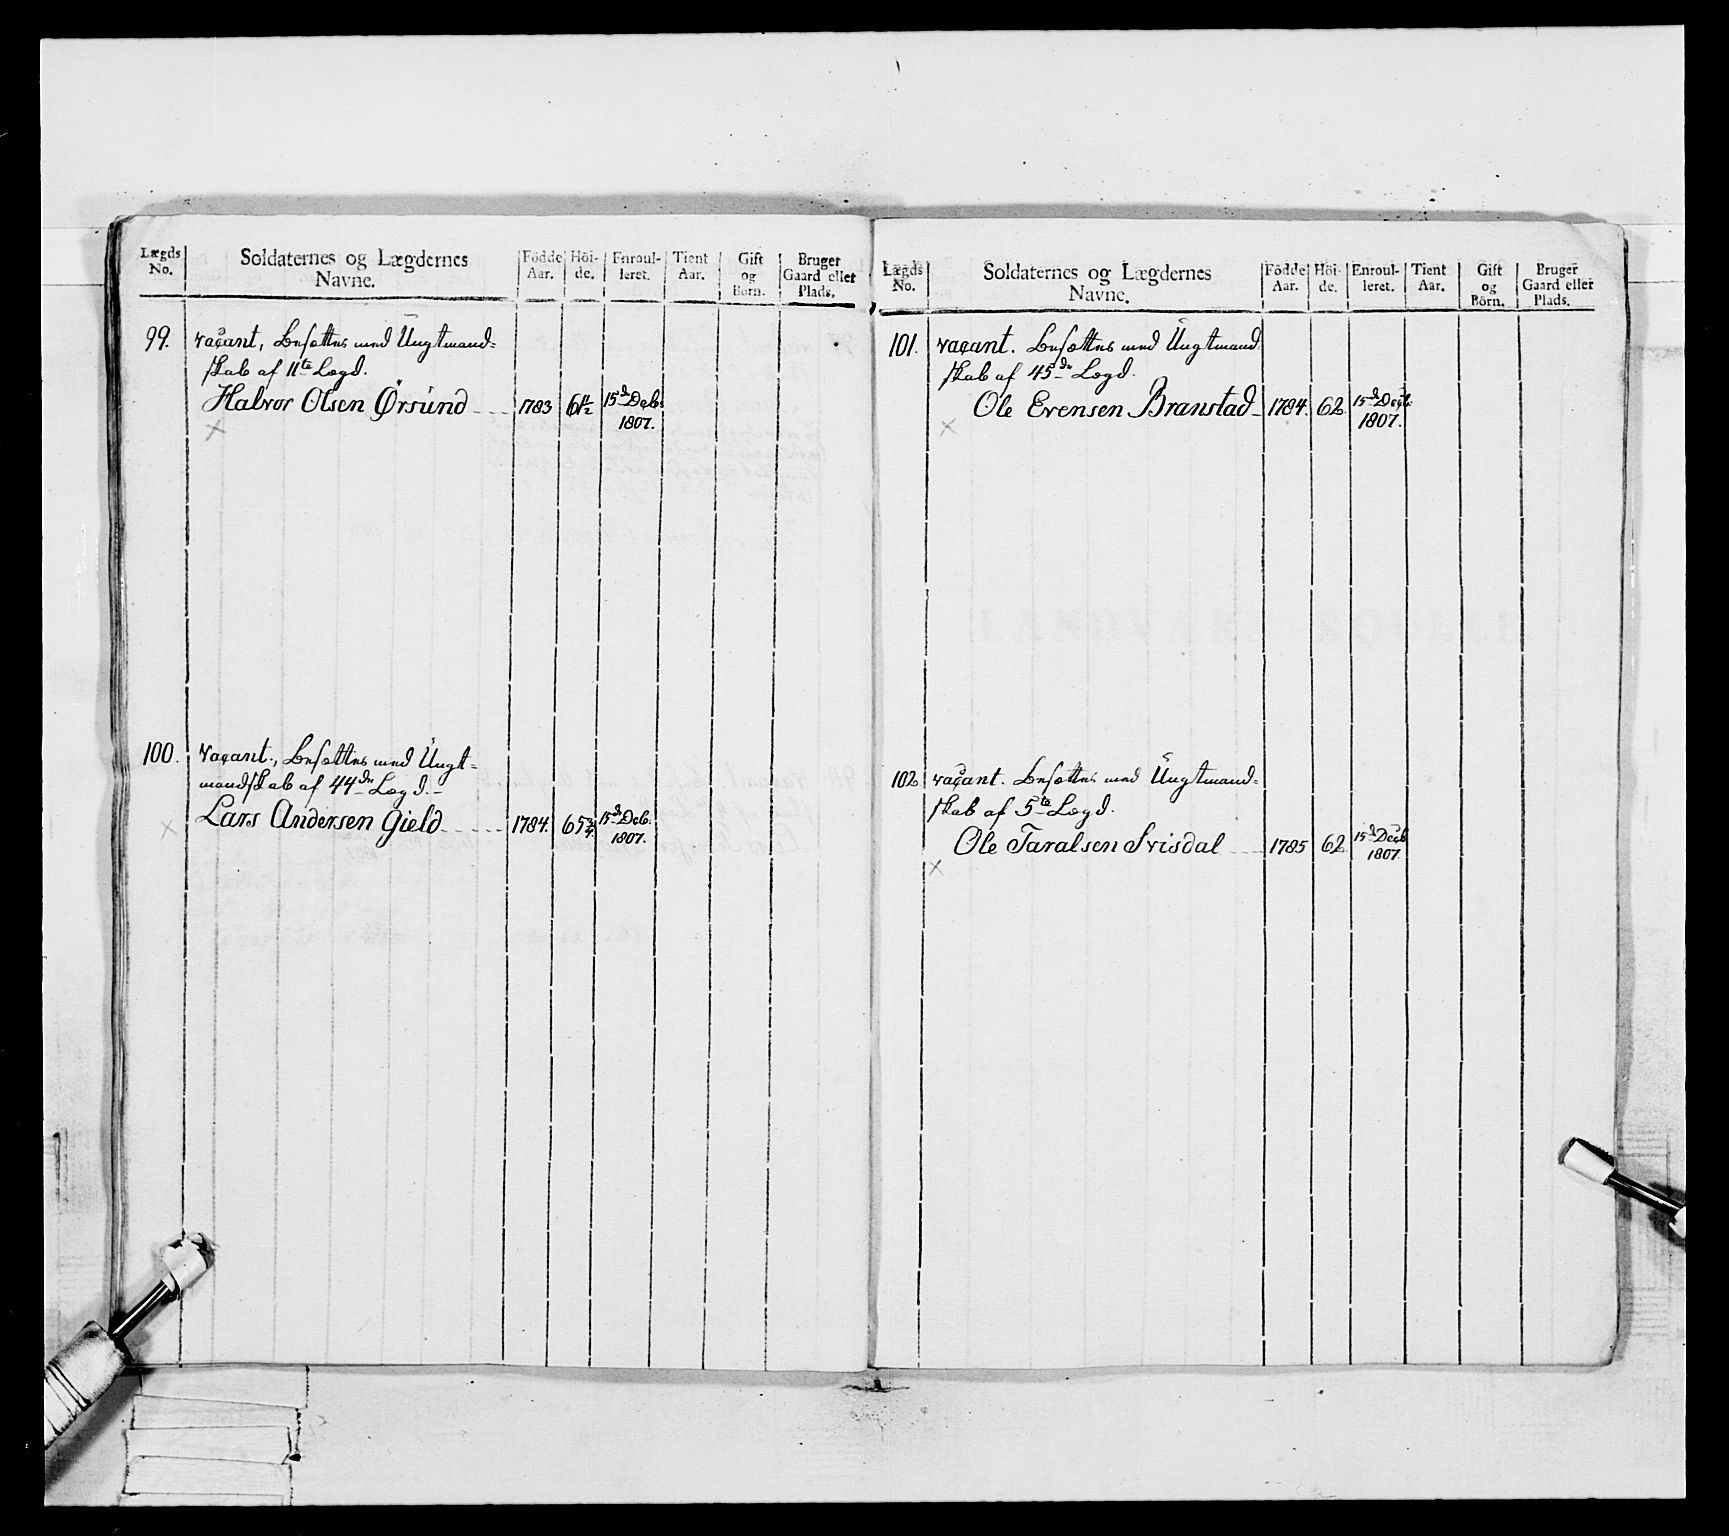 Lægds No. Soldaternes og Lægdernes Navne. Födde Aar. Höi-de. Enroul-leret. Tient Aar. Gift og Börn. Bruger Gaard eller Plads.
99. vacant, besættes med Ungtmand=
skab af 11te Lægd.
Halvor Olsen Örsund 1783 61 1/2 15d Decb:
1807.
100. vacant., besættes med Ungt=
mandskab af 44de Lægd.
Lars Andersen Gield 1784. 65 3/4. 15d Decb.
1807.
Lægds No. Soldaternes og Lægdernes Navne. Födde Aar. Höi-de. Enroul-leret. Tient Aar. Gift og Börn. Bruger Gaard eller Plads.
101. vacant. besættes med Ungtmand
skab af 45de Lægd.
Ole Evensen Branstad 1784. 62 15d Decb.
1807.
102. vacant. besættes med Ungtmand=
skab af 5te Lægd.
Ole Taralsen Svisdal 1785 62 15d Decb
1807.